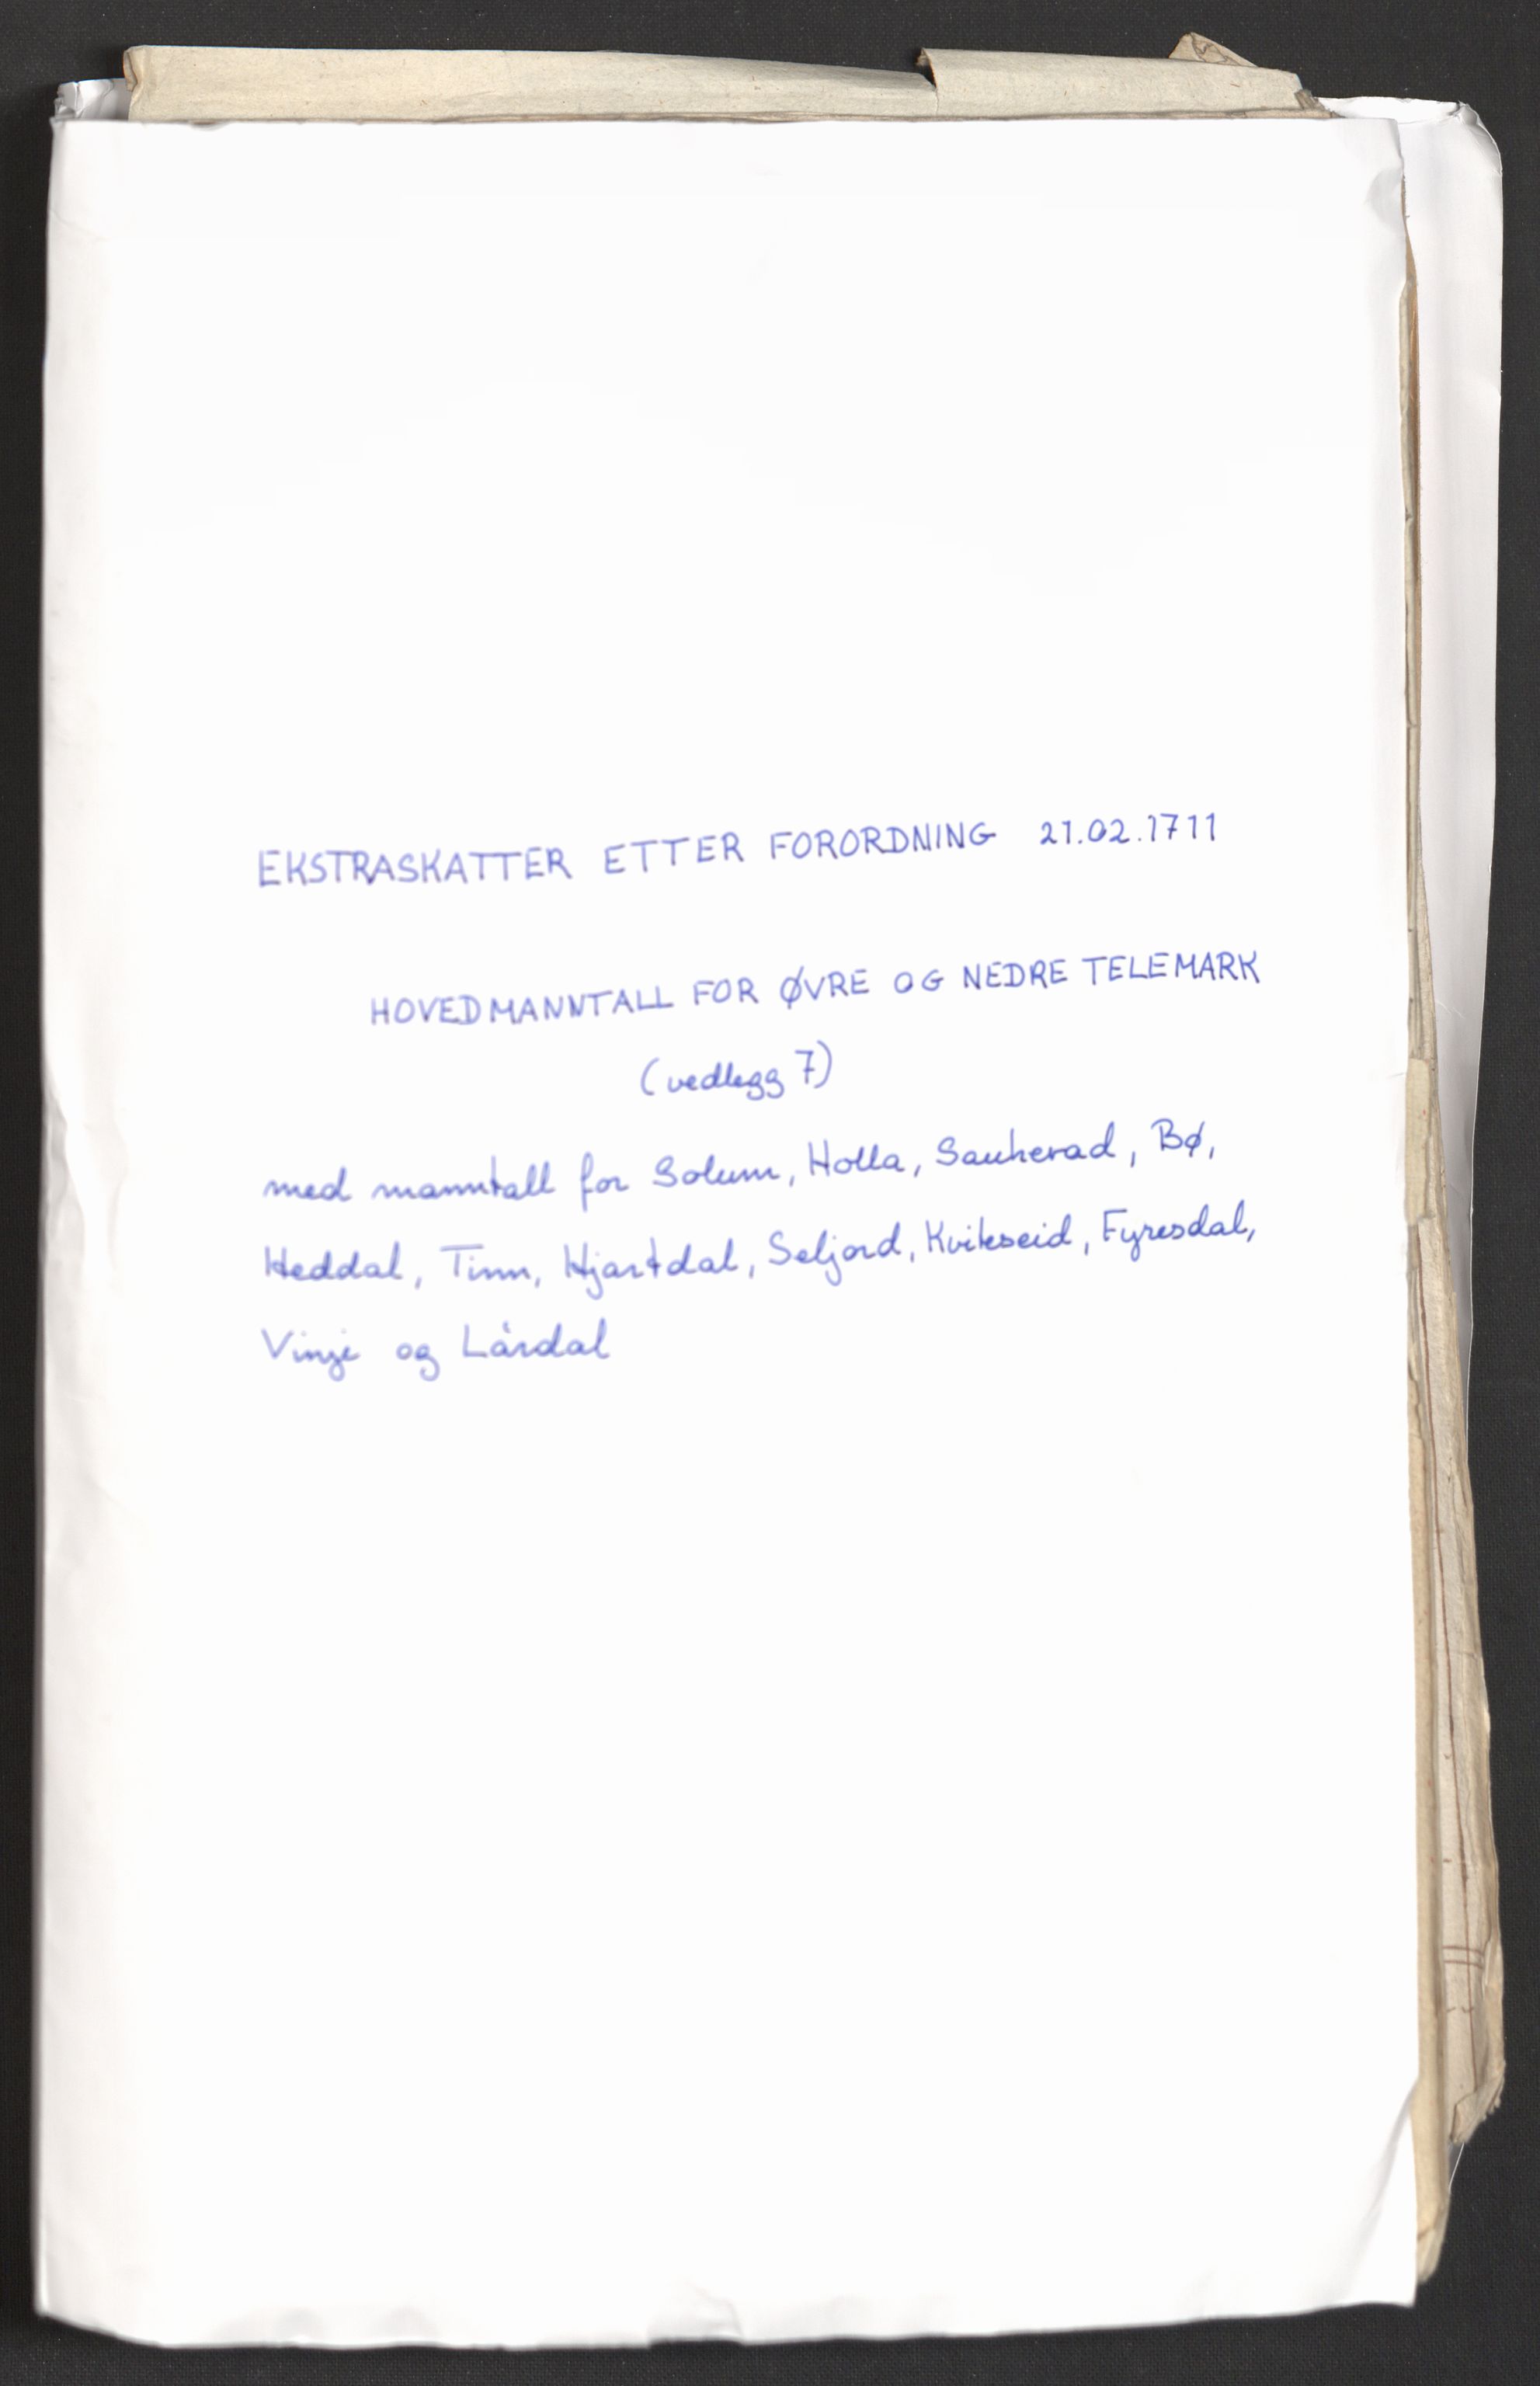 EKSTRASKATTER ETTER FORORDNING 21.02.1711
HOVEDMANNTALL FOR ØVRE OG NEDRE TELEMARK
(vedlegg 7)
med manntall for Solum, Holla, Sauherad, Bø,
Heddal, Tinn, Hjartdal, Seljord, Kviteseid, Fyresdal,
Vinje og Lårdal